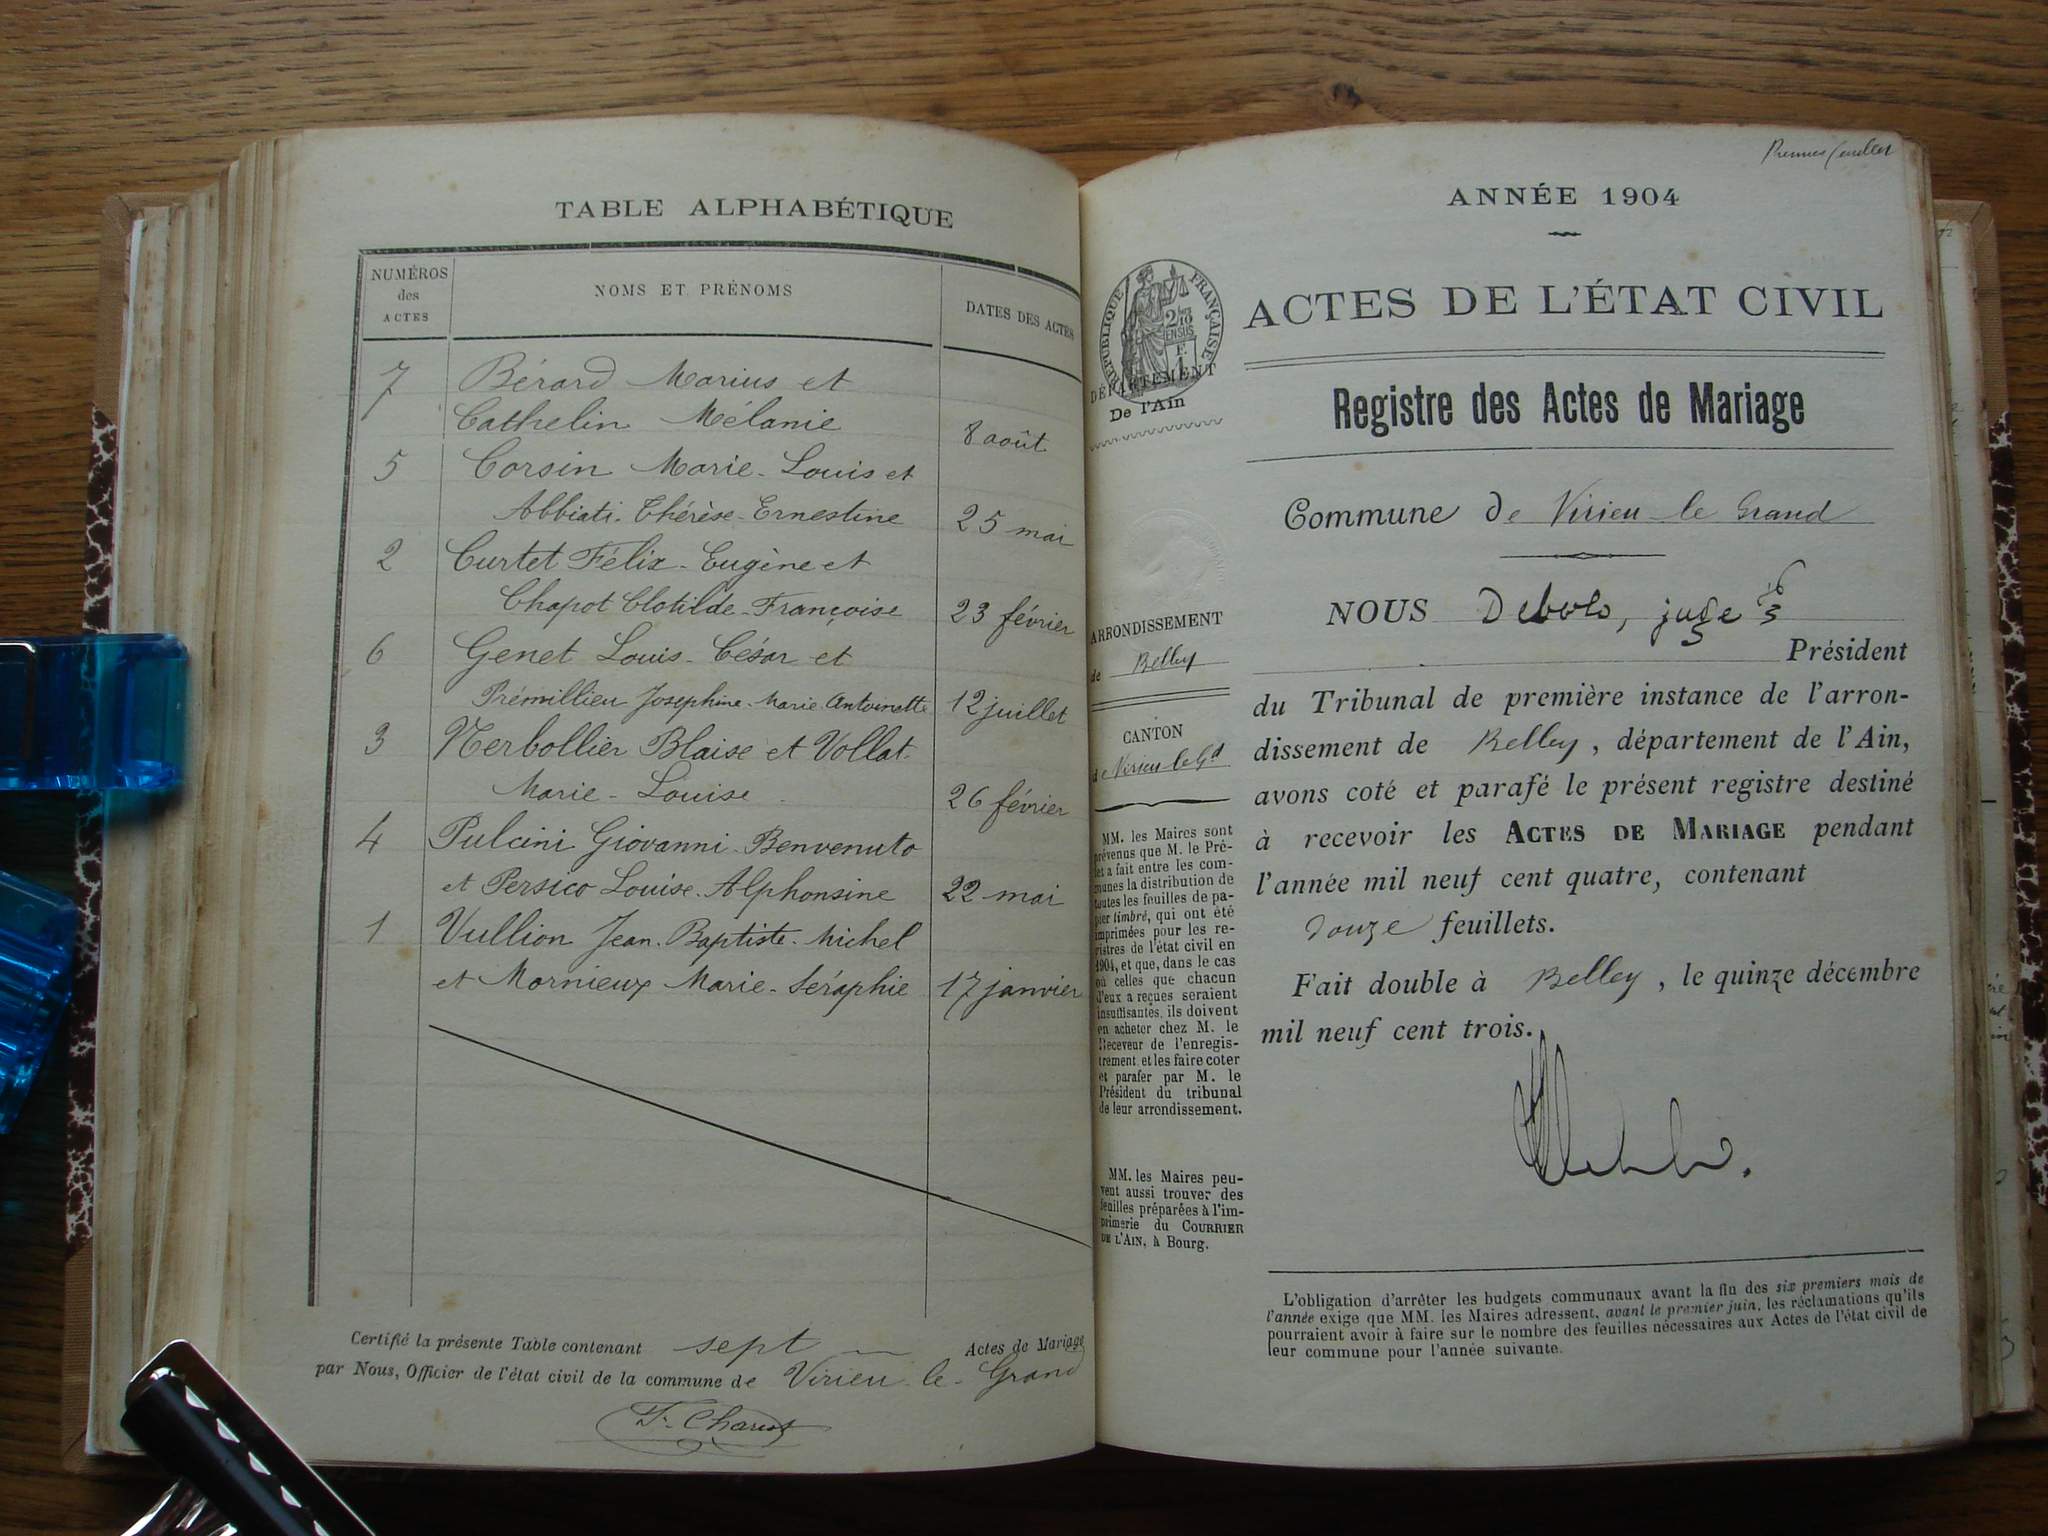 TABLE ALPHABÉTIQUE
NUMÉROS
des
ACTES
NOMS ET PRÉNOMS
DATES DES ACTES
7 Bérard Marius et
Cathelin Mélanie 8 août
5 Corsin Marie-Louis et
Abbiati Thérèse-Ernestine 25 mai
2 Curtet Félix-Eugène et
Chapot Clotilde-Françoise 23 février
6 Genet Louis-César et
Prémillieu Josephine-Marie-Antoinette 12 juillet
3 Nerbollier Blaise et Vollat
Marie-Louise 26 février
4 Pulcini Giovanni-Benvenuto
et Persico Louise-Alphonsine 22 mai
1 Vullion Jean-Baptiste-Michel
et Mornieux Marie-Séraphie 17 janvier
Certifié la présente Table contenant sept Actes de Mariage
par Nous, Officier de l'état civil de la commune de Virieu-le-Grand
ANNÉE 1904
RÉPUBLIQUE FRANÇAISE
DÉPARTEMENT
De l'Ain
ACTES DE L'ÉTAT CIVIL
Registre des Actes de Mariage
Commune de Virieu-le Grand
ARRONDISSEMENT
de Belley
CANTON
de Virieu le Gd
MM. les Maires sont
prévenus que M. le Pré-
fet a fait entre les com-
munes la distribution de
toutes les feuilles de pa-
pier timbré, qui ont été
imprimées pour les re-
gistres de l'état civil en
1904, et que, dans le cas
où celles que chacun
d'eux a reçues seraient
insuffisantes, ils doivent
en acheter chez M. le
Receveur de l'enregis-
trement et les faire coter
et parafer par M. le
Président du tribunal
de leur arrondissement.
MM. les Maires peu-
vent aussi trouver des
feuilles préparées à l'im-
primerie du COURRIER
DE L'AIN, à Bourg.
NOUS juge
Président
du Tribunal de première instance de l'arron-
dissement de Belley, département de l'Ain,
avons coté et parafé le présent registre destiné
à recevoir les ACTES DE MARIAGE pendant
l'année mil neuf cent quatre, contenant
douze feuillets.
Fait double à Belley, le quinze décembre
mil neuf cent trois.
L'obligation d'arrêter les budgets communaux avant la fin des six premiers mois de
l'année exige que MM. les Maires adressent, avant le premier juin, les réclamations qu'ils
pourraient avoir à faire sur le nombre des feuilles nécessaires aux Actes de l'état civil de
leur commune pour l'année suivante.